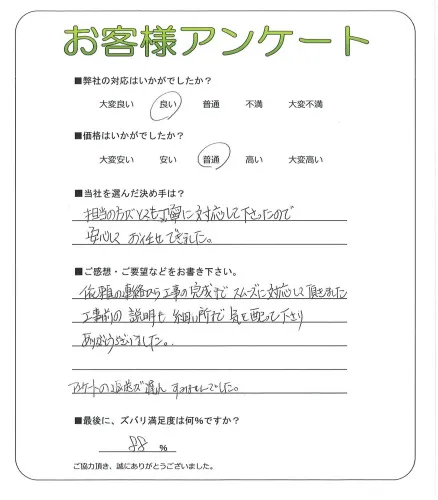 お客様アンケート
■弊社の対応はいかがでしたか?
大変良い 良い 普通 不満 大変不満
■価格はいかがでしたか?
大変安い 安い 普通 高い 大変高い
■当社を選んだ決め手は?
担当の方がとても丁寧に対応して下さったので
安心して お任せできました。
■ご感想・ご要望などをお書き下さい。
依頼の連絡から工事の完成までスムーズに対応して頂きました
工事前の説明も細い所まで気を配って下さり
ありがとうございました。
アンケートの返送が遅れ すみませんでした。
■最後に、ズバリ満足度は何%ですか?
88 %
ご協力頂き、誠にありがとうございました。